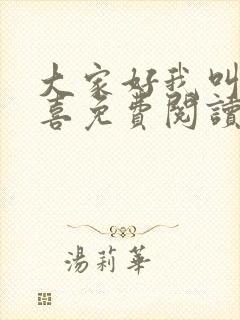 大家好我叫
喜免費閱讀
湯莉華